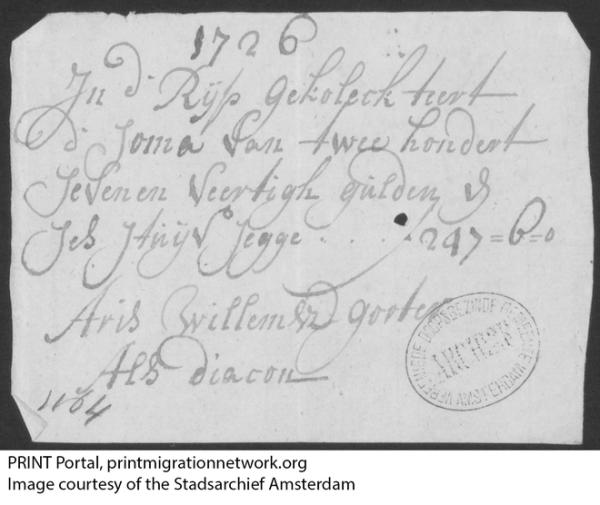 1726
In d' Rijp gekoleckteert
d' Soma van twee hondert
seven en veertigh gulden &
ses stuijv segge . . . . 247=6=0
Aris Willemsz gorter
Als diacon
1164
VEREENIGDE DOOPSGEZINDE GEMEENTE AMSTERDAM
ARCHIEF
PRINT Portal, printmigrationnetwork.org
Image courtesy of the Stadsarchief Amsterdam